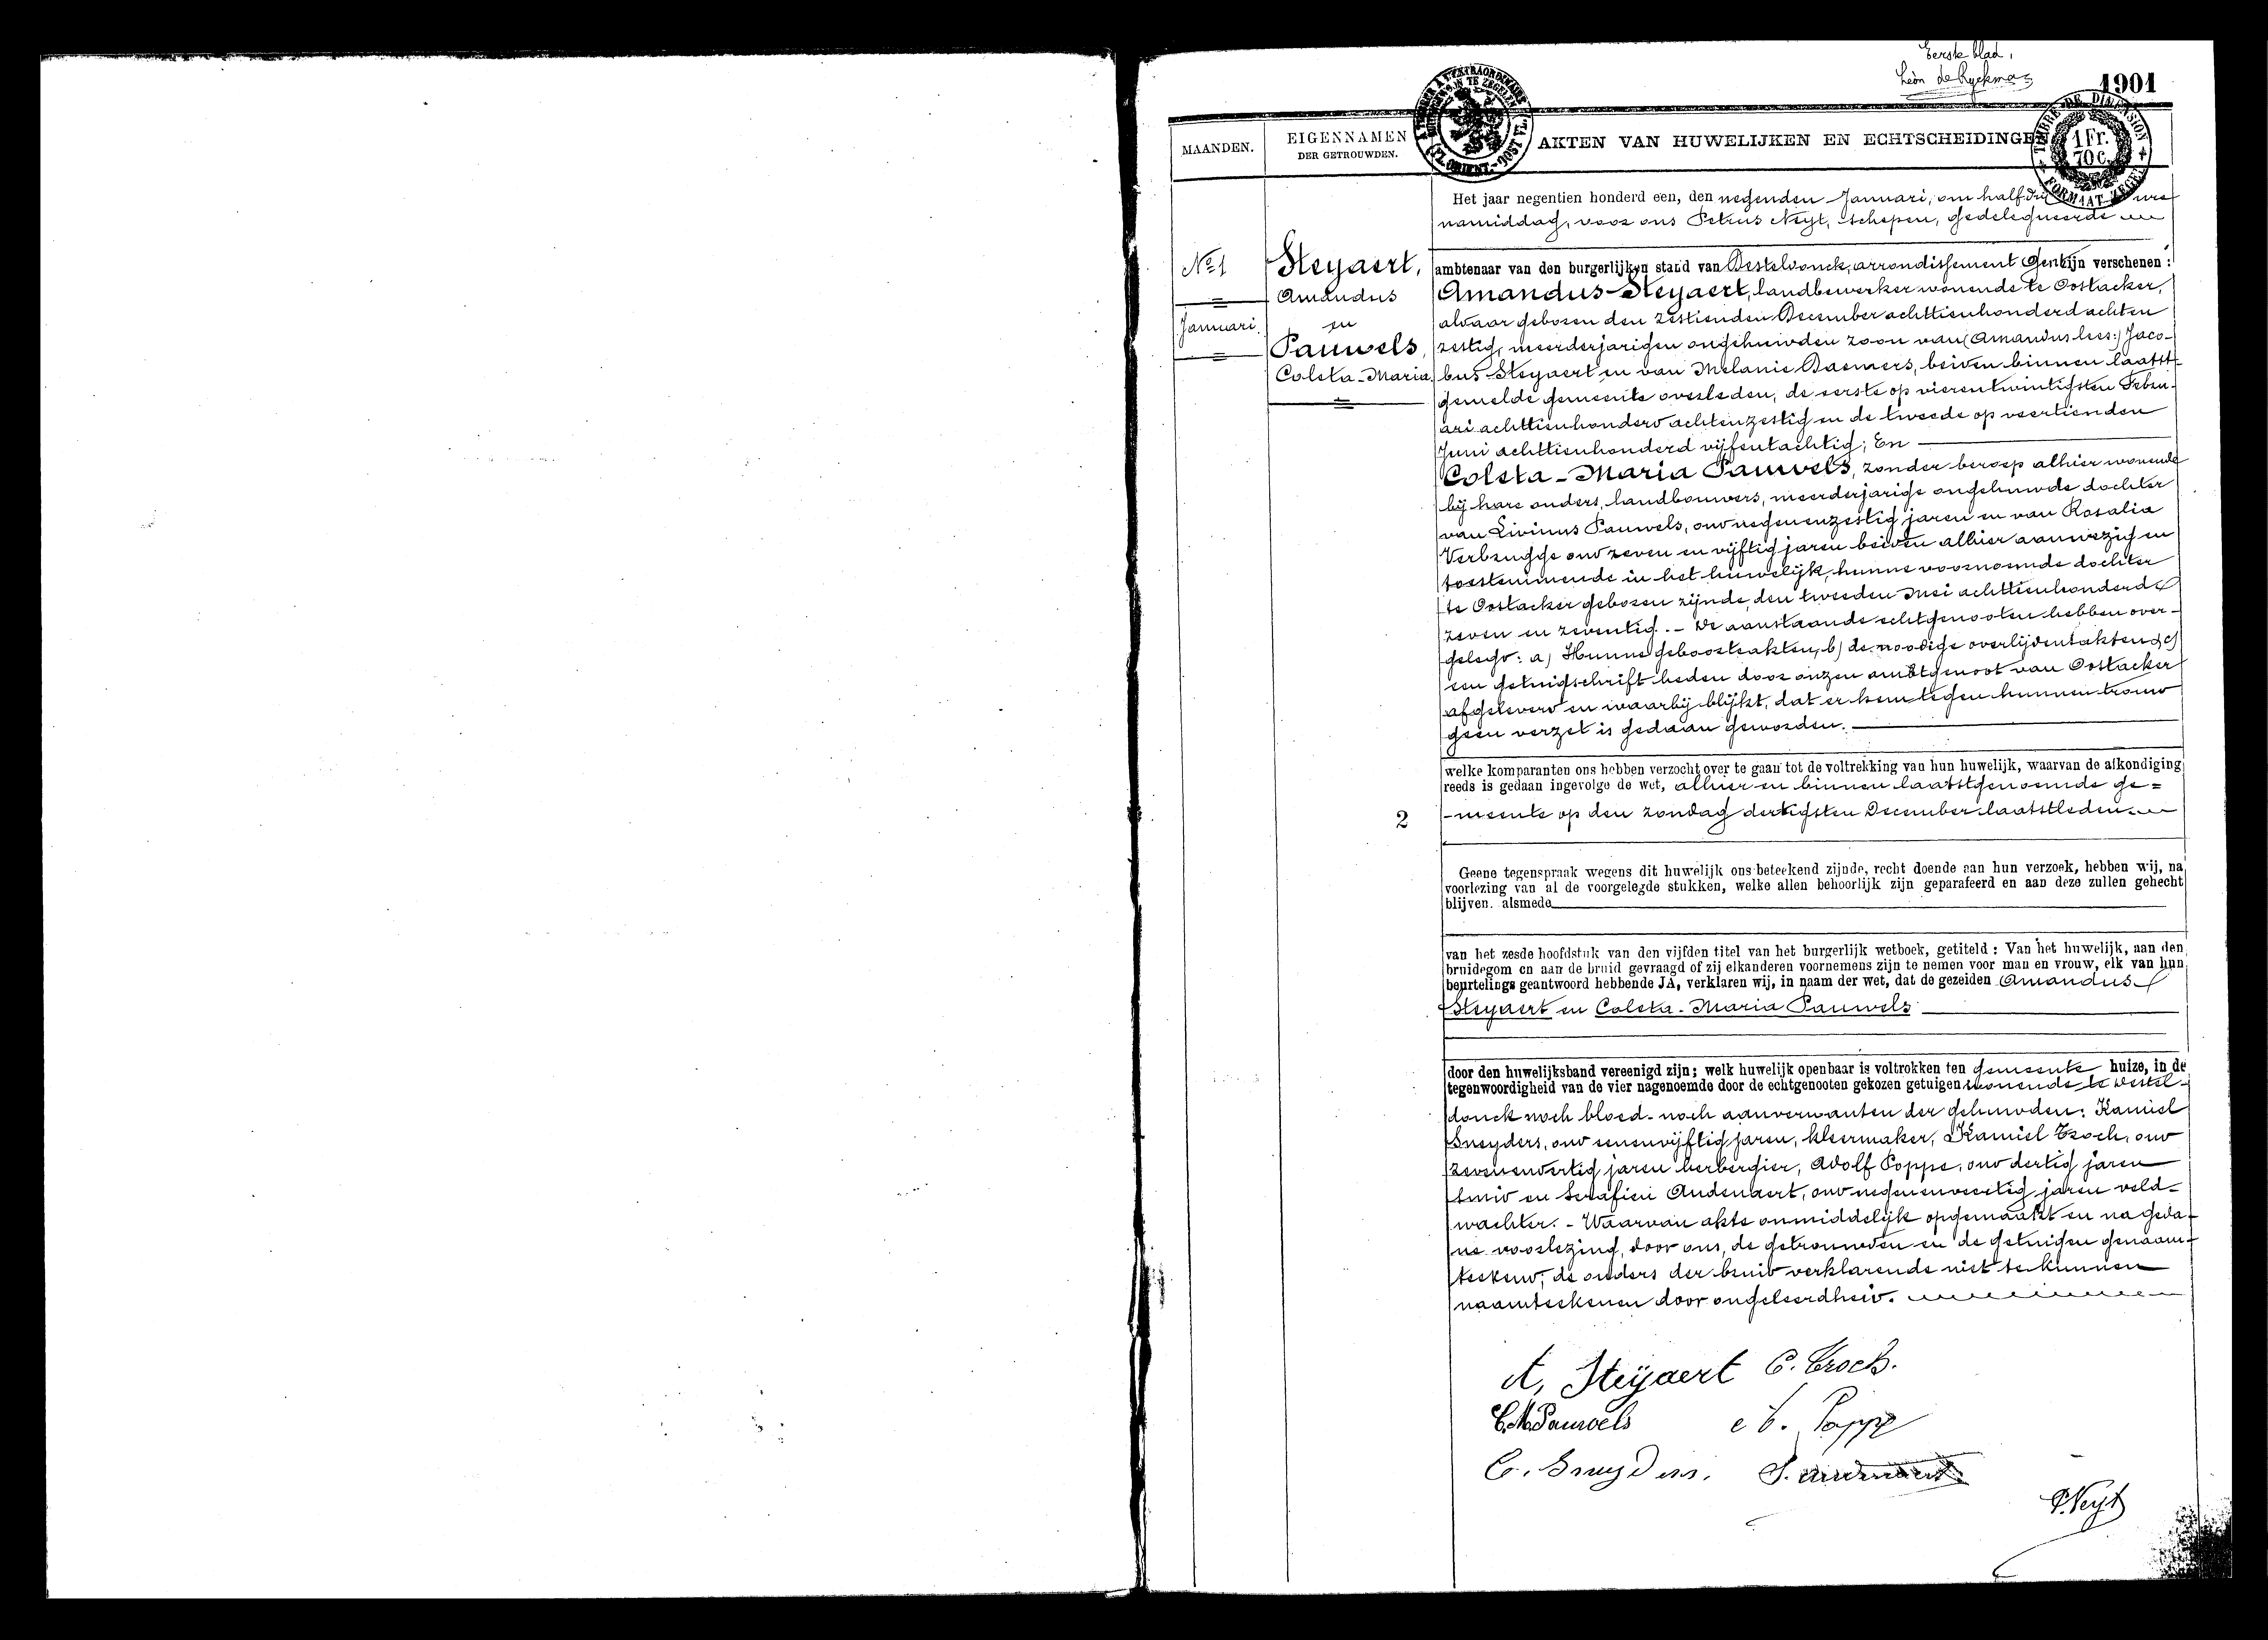 Eerste blad.
Léon de Ryckman
1901
MAANDEN.
EIGENNAMEN
DER GETROUWDEN.
AKTEN VAN HUWELIJKEN EN ECHTSCHEIDINGE
TIMBRE DE DIMENSION
1 Fr.
70 C.
FORMAAT ZEGEL
Het jaar negentien honderd een, den negenden Januari, om half dri ure
namiddag, voor ons Petrus Neyt, schepen, gedelegueerde
No 1
Januari.
Steyaert,
Amandus
en
Pauwels,
Coleta-Maria.
ambtenaar van den burgerlijken stand van Desteldonck, arrondissement Gent zijn verschenen :
Amandus Steyaert, landbewerker wonende te Oostacker,
aldaar geboren den zestienden December achttienhonderd achten
zestig, meerderjarigen ongehuwden zoon van (Amandus lees:) Jaco-
bus Steyaert en van Melanie Daemers, beiden binnen laatst-
gemelde gemeente overleden, de eerste op vierentwintigsten Febru-
ari achttienhonderd achtenzestig en de tweede op veertienden
Juni achttienhonderd vijfentachtig; En
Coleta-Maria Pauwels, zonder beroep alhier wonende
bij hare ouders, landbouwers, meerderjarige ongehuwde dochter
van Livinus Pauwels, oud negenenzestig jaren en van Rosalia
Verbrugge oud zeven en vijftig jaren beiden alhier aanwezig en
toestemmende in het huwelijk, hunne voornoemde dochter
te Oostacker geboren zijnde, den tweeden Mei achttienhonderd
zeven en zeventig. - De aanstaande echtgenooten hebben over-
gelegd: a) Hunne geboorteakten, b) de noodige overlijdensakten, c)
een getuigschrift heden door onzen ambtgenoot van Oostacker
afgeleverd en waarbij blijkt, dat er hem tegen hunnen trouw
geen verzet is gedaan geworden.
welke komparanten ons hebben verzocht over te gaan tot de voltrekking van hun huwelijk, waarvan de afkondiging
reeds is gedaan ingevolge de wet, alhier en binnen laatstgenoemde ge=
-meente op den zondag dertigsten December laatstleden.
2
Geene tegenspraak wegens dit huwelijk ons beteekend zijnde, recht doende aan hun verzoek, hebben wij, na
voorlezing van al de voorgelegde stukken, welke allen behoorlijk zijn geparafeerd en aan deze zullen gehecht
blijven. alsmede
van het zesde hoofdstuk van den vijfden titel van het burgerlijk wetboek, getiteld : Van het huwelijk, aan den
bruidegom en aan de bruid gevraagd of zij elkanderen voornemens zijn te nemen voor man en vrouw, elk van hun
beurtelings geantwoord hebbende JA, verklaren wij, in naam der wet, dat de gezeiden Amandus
Steyaert en Coleta-Maria Pauwels
door den huwelijksband vereenigd zijn; welk huwelijk openbaar is voltrokken ten gemeente huize, in de
tegenwoordigheid van de vier nagenoemde door de echtgenooten gekozen getuigen wonende te Destel-
donck noch bloed- noch aanverwanten der gehuwden: Kamiel
Sneyders, oud eenenvijftig jaren, kleermaker, Kamiel Croch, oud
zevenenvertig jaren herbergier, Adolf Poppe, oud dertig jaren
smid en Serafien Audenaert, oud negenenveertig jaren veld-
wachter. - Waarvan akte onmiddelijk opgemaakt en na geda-
ne voorlezing, door ons, de getrouwden en de getuigen genaam-
teekend; de ouders der bruid verklarende niet te kunnen
naamteekenen door ongeleerdheid.
A, Steijaert C. Croch.
C.M. Pauwels
C. Sneyders.
P. Neyt